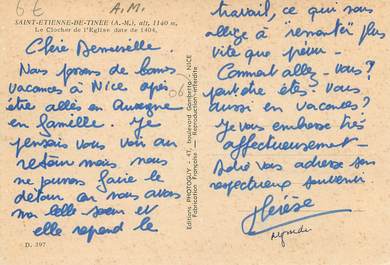 6€
A.M.
SAINT-ETIENNE-DE-TINÉE (A.-M.), alt. 1140 m.
Le Clocher de l'Eglise date de 1404.
Chère Demoiselle.
Nous passons de bonnes
vacances à Nice après
être allés en Auvergne
en famille. Je
pensais vous voir au
retour mais nous
ne pouvons faire le
détour car nous avons
ma belle soeur et
elle reprend le
D. 297
Editions PHOTOGUY - 47, boulevard Gambetta - NICE
Fabrication Française — Reproduction interdite
06
travail, ce qui nous
oblige à "remonter" plus
vite que prévu.
Comment allez-vous?
peut être êtes-vous
aussi en vacances?
Je vous embrasse très
affectueusement
vous adresse son
respectueux souvenir
Thérèse